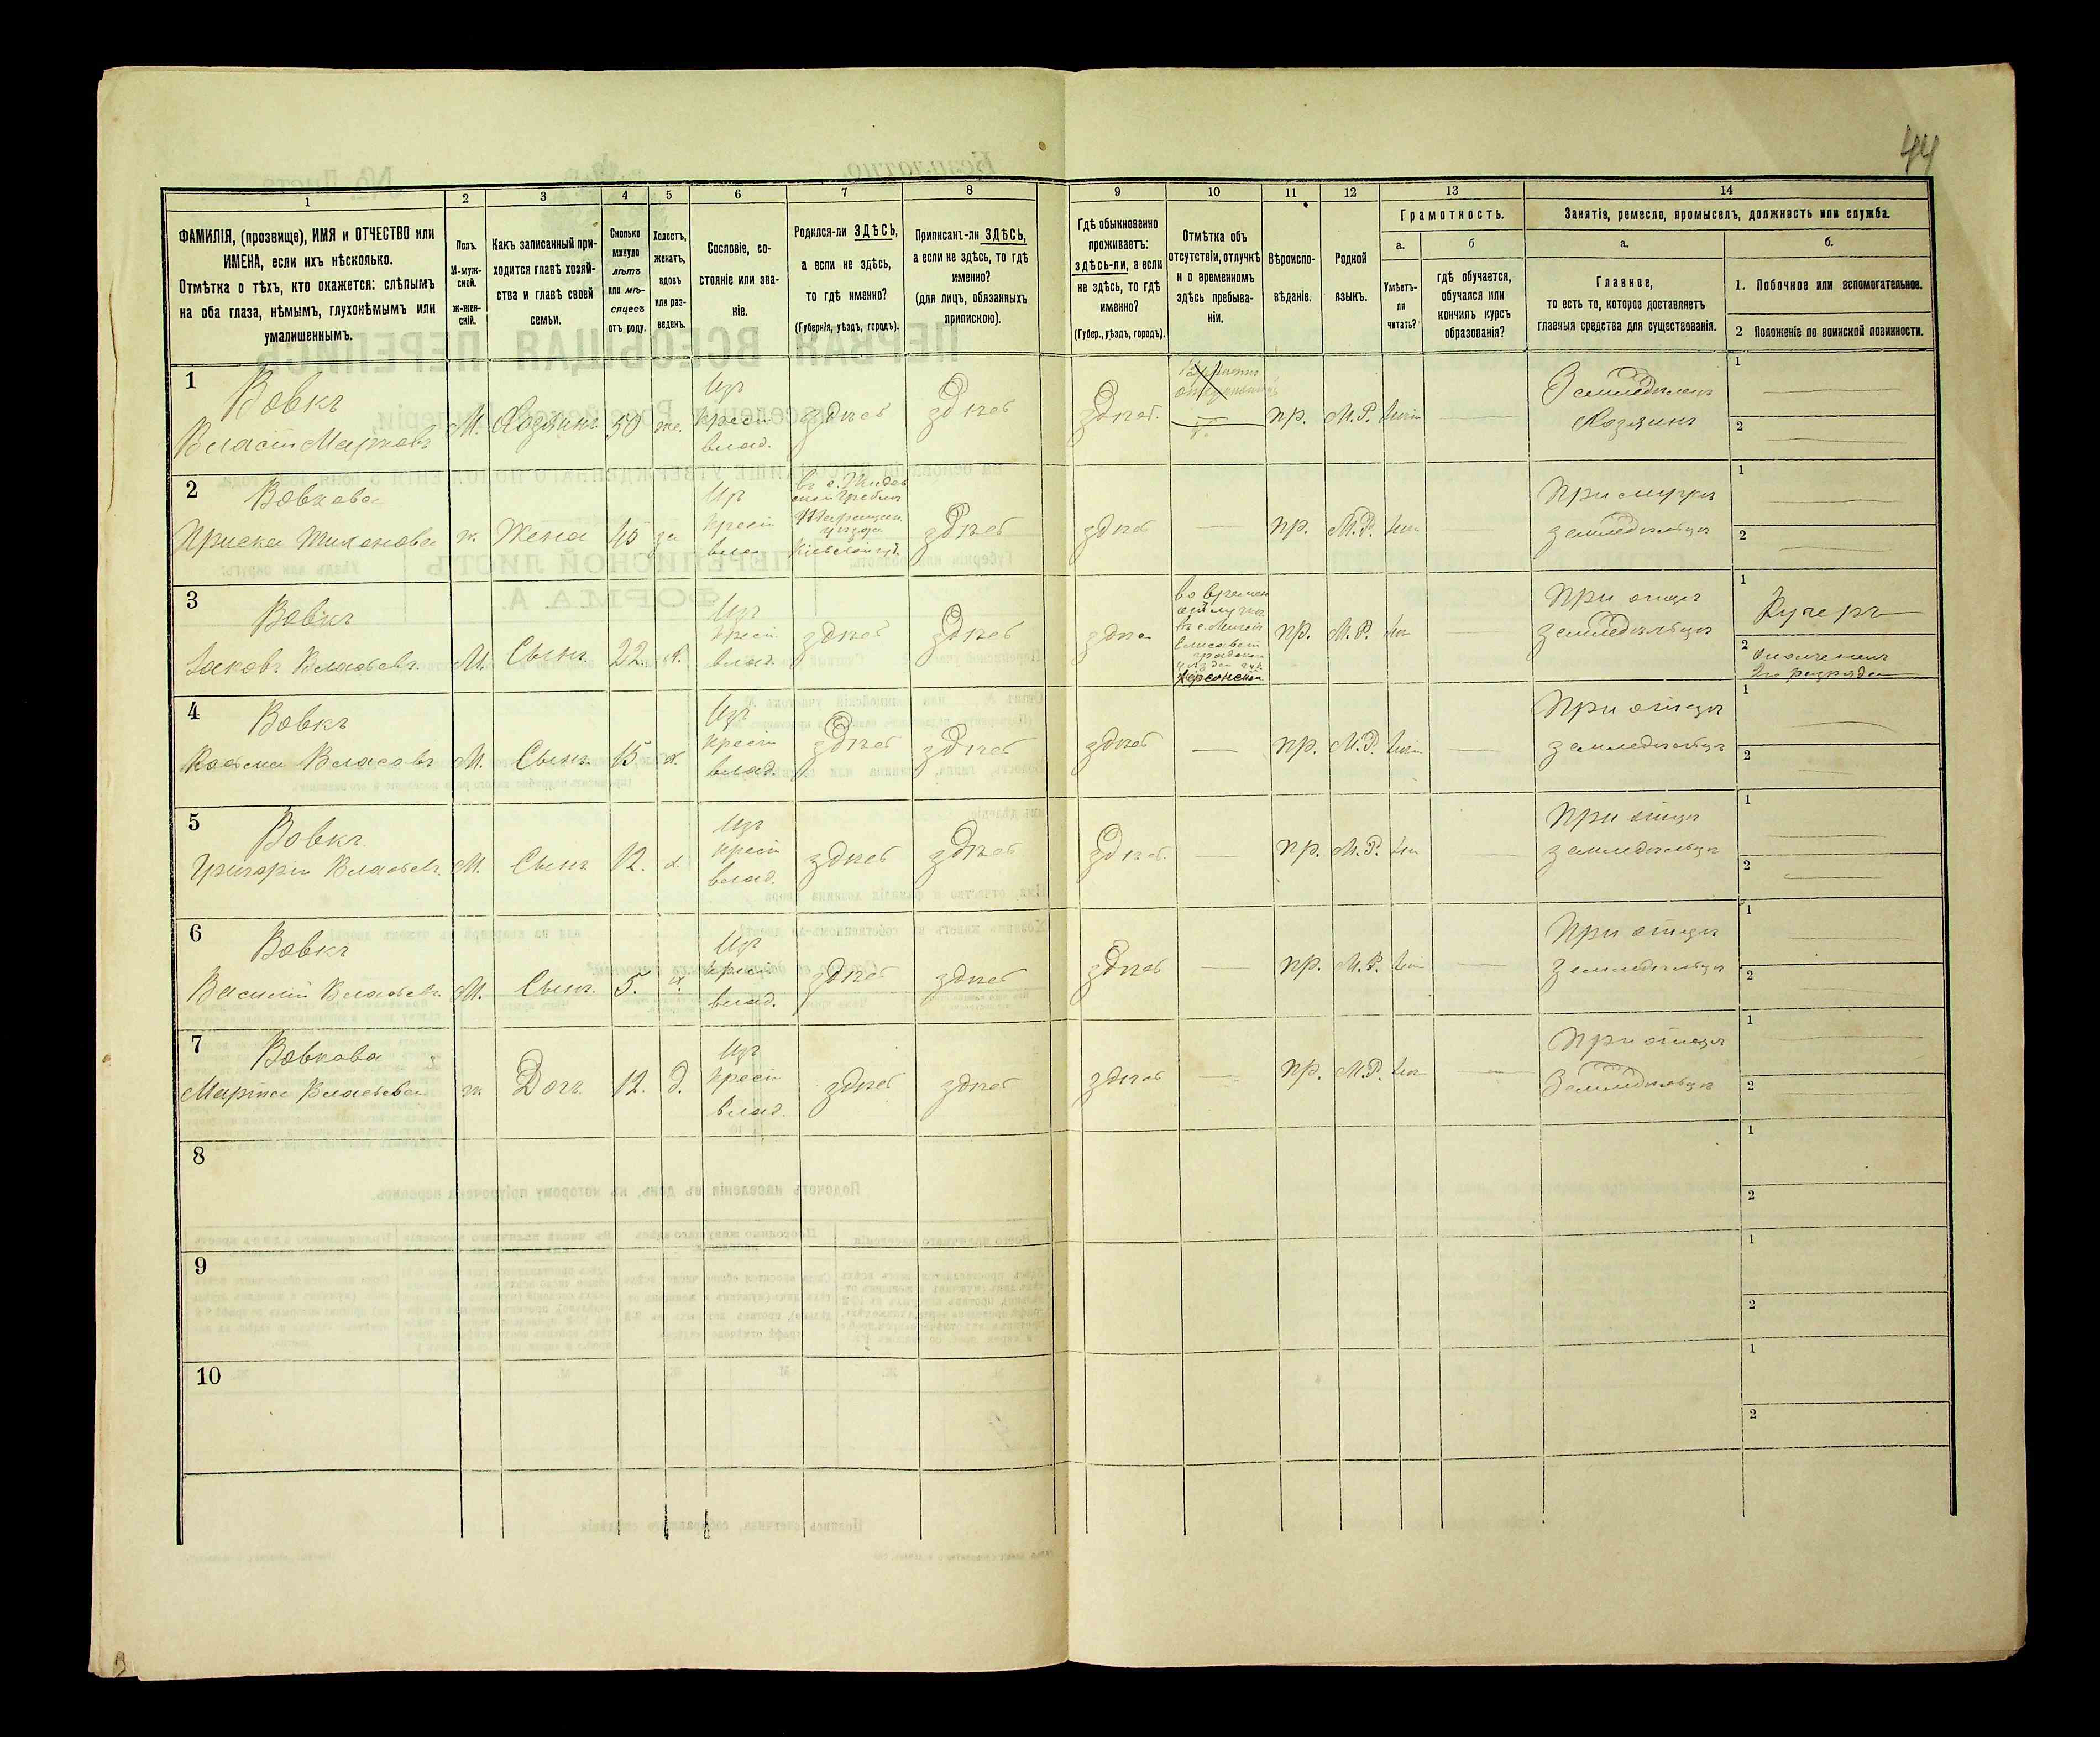 44
1
2
3
4
5
6
7
8
9
10
11
12
13
14
ФАМИЛІЯ, (прозвище), ИМЯ и ОТЧЕСТВО или
ИМЕНА, если ихъ нѣсколько.
Отмѣтка о тѣхъ, кто окажется: слѣпымъ
на оба глаза, нѣмымъ, глухонѣмымъ или
умалишеннымъ.
Полъ.
М-муж-
ской.
ж-жен-
скій.
Какъ записанный при-
ходится главѣ хозяй-
ства и главѣ своей
семьи.
Сколько
минуло
лѣтъ
или мѣ-
сяцевъ
отъ роду.
Холостъ,
женатъ,
вдовъ
или раз-
веденъ.
Сословіе, со-
стояніе или зва-
ніе.
Родился-ли ЗДѢСЬ,
а если не здѣсь,
то гдѣ именно?
(Губернія, уѣздъ, городъ).
Приписанъ-ли ЗДѢСЬ,
а если не здѣсь, то гдѣ
именно?
(для лицъ, обязанныхъ
припискою).
Гдѣ обыкновенно
проживаетъ:
здѣсь-ли, а если
не здѣсь, то гдѣ
именно?
(Губер., уѣздъ, городъ).
Отмѣтка объ
отсутствіи, отлучкѣ
и о временномъ
здѣсь пребыва-
ніи.
Вѣроиспо-
вѣданіе.
Родной
языкъ.
Грамотность.
а.
Умѣетъ-
ли
читать?
б
гдѣ обучается,
обучался или
кончилъ курсъ
образованія?
Занятіе, ремесло, промыселъ, должность или служба.
а.
Главное,
то есть то, которое доставляетъ
главныя средства для существованія.
б.
1. Побочное или вспомогательное.
2 Положеніе по воинской повинности.
1
Вовкъ
Власій Марковъ
М.
Хозяинъ
50
же.
Изъ
крест
влад.
здѣсь
здѣсь
здѣсь.
пр.
М.Р.
Земледѣлецъ
Хозяинъ
1
2
2
Вовкова
Приска Тихонова
ж
Жена
45
за
Изъ
крест
вла
уѣзда
здѣсь
здѣсь
пр.
М.Р.
При мужѣ
земледѣльцѣ
1
2
3
Вовкъ
Іаковъ Власьевъ
М.
Сынъ
22.
х.
Изъ
крест
влад.
здѣсь
здѣсь
здѣсь
во времен
отлучкѣ
Елисавет
градскаго
уѣзда губ.
Херсонской
пр.
М.Р.
При отцѣ
земледѣльцѣ
1
Кучеръ
2
ополченецъ
2го разряда
4
Вовкъ
Косьма Власовъ
М.
Сынъ
15
х.
Изъ
крест
влад.
здѣсь
здѣсь
здѣсь
пр.
М.Р.
При отцѣ
земледѣльцѣ
1
2
5
Вовкъ
Григорій Власьевъ.
М.
Сынъ
12.
х
Изъ
крест
влад.
здѣсь
здѣсь
здѣсь.
пр.
М.Р.
При отцѣ
земледѣльцѣ
1
2
6
Вовкъ
Василій Власьевъ.
М.
Сынъ.
5.
х.
Изъ
крест
влад.
здѣсь
здѣсь
здѣсь
пр.
М.Р.
При отцѣ
земледѣльцѣ
1
2
7
Вовкова
Марта Власьева
ж
Дочь.
12.
д.
Изъ
крест
влад.
здѣсь
здѣсь
здѣсь
пр.
М.Р.
При отцѣ
Земледѣльцѣ
1
2
8
1
2
9
1
2
10
1
2